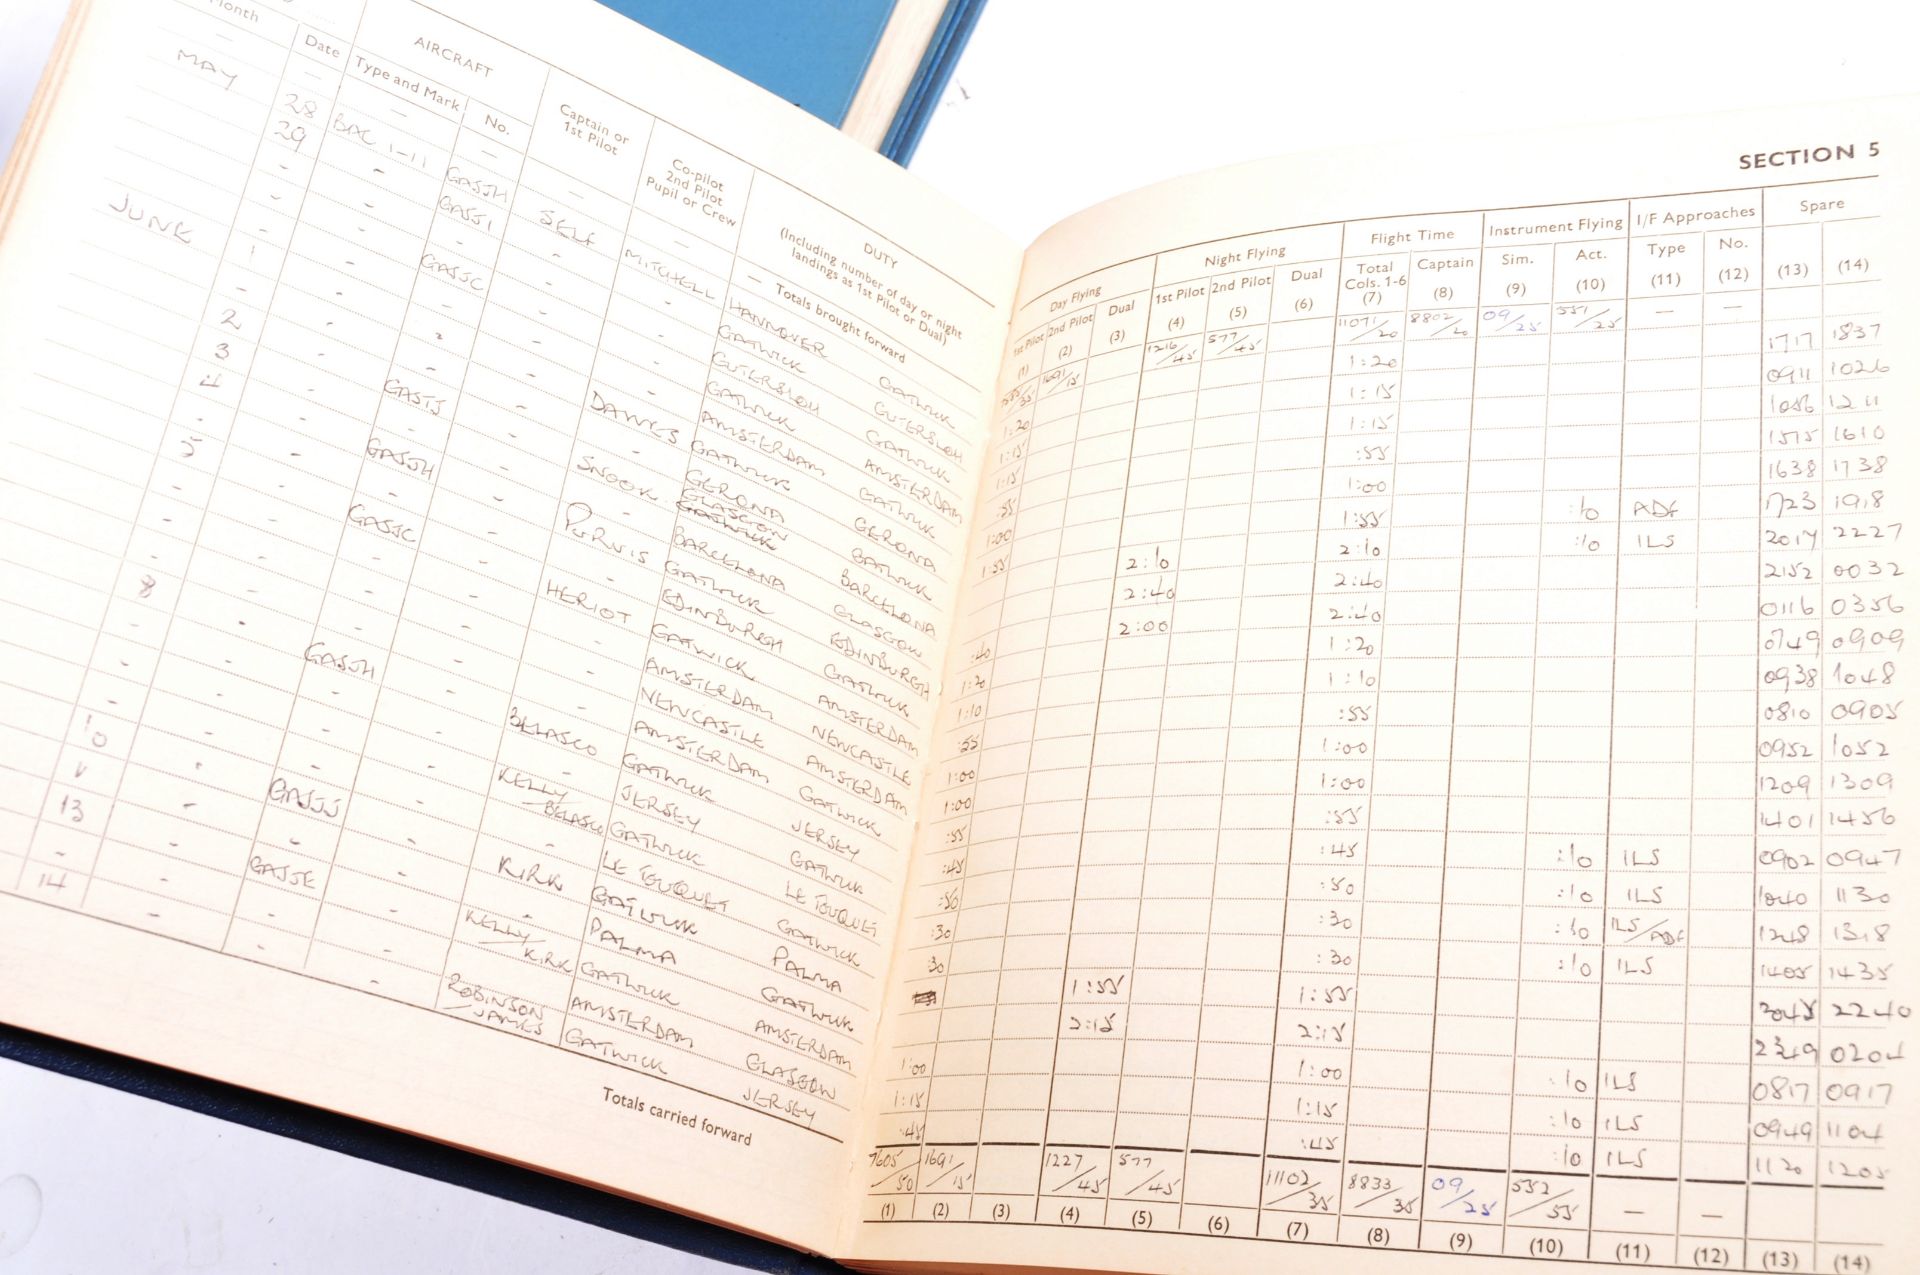 Month Date AIRCRAFT Type and Mark No. Captain or 1st Pilot Co-pilot 2nd Pilot Pupil or Crew DUTY (Including number of day or night landings as 1st Pilot or Dual)
— — — — — — — Totals brought forward
MAY 28 BAC 1-11 GASJH SELF MITCHELL HANNOVER GATWICK
29 - GASJI - - GATWICK GUTERSLOH
- - - - - GUTERSLOH GATWICK
- - GASJC - - GATWICK AMSTERDAM
- - - - - AMSTERDAM GATWICK
JUNE 1 - - - DAWKES GATWICK GERONA
- - - - - GERONA GATWICK
2 - GASJJ - SNOOK GLASGOW GATWICK BARCELONA
3 - - - - BARCELONA GLASGOW
4 - GASJH - PURVIS GATWICK EDINBURGH
- - - - - EDINBURGH GATWICK
5 - GASJC - HERIOT GATWICK AMSTERDAM
- - - - - AMSTERDAM NEWCASTLE
- - - - - NEWCASTLE AMSTERDAM
- - - - - AMSTERDAM GATWICK
8 - GASJH - BELASCO GATWICK JERSEY
- - - - - JERSEY GATWICK
- - - - KELLY/BELASCO GATWICK LE TOUQUET
- - - - - LE TOUQUET GATWICK
10 - GASJJ - KIRK GATWICK PALMA
11 - - - - PALMA GATWICK
13 - GASJE - KELLY/KIRK GATWICK AMSTERDAM
- - - - - AMSTERDAM GLASGOW
14 - - - ROBINSON JAMES GATWICK JERSEY
Totals carried forward
SECTION 5
Day Flying Night Flying Flight Time Instrument Flying I/F Approaches Spare
1st Pilot (1) 2nd Pilot (2) Dual (3) 1st Pilot (4) 2nd Pilot (5) Dual (6) Total Cols. 1-6 (7) Captain (8) Sim. (9) Act. (10) Type (11) No. (12) (13) (14)
1691/15 1216/45 577/45 11071/20 8802/20 09/25 551/25 — —
1:20 1:20 1717 1837
1:15 1:15 0911 1026
1:15 1:15 1056 1211
:55 :55 1515 1610
1:00 1:00 1638 1738
1:55 1:55 :10 ADF 1723 1918
2:10 2:10 :10 ILS 2017 2227
2:40 2:40 2152 0032
2:00 :40 2:40 0116 0356
1:20 1:20 0749 0909
1:10 1:10 0938 1048
:55 :55 0810 0905
1:00 1:00 0952 1052
1:00 1:00 1209 1309
:55 :55 1401 1456
:45 :45 :10 ILS 0902 0947
:50 :50 :10 ILS 1040 1130
:30 :30 :10 ILS/ADF 1248 1318
:30 :30 :10 ILS 1405 1435
1:55 1:55 2045 2240
2:15 2:15 2349 0204
1:00 1:00 :10 ILS 0817 0917
1:15 1:15 :10 ILS 0949 1104
:45 :45 :10 ILS 1120 1205
7605/50 1691/15 1227/45 577/45 11102/35 8833/35 09/25 552/55 — —
(1) (2) (3) (4) (5) (6) (7) (8) (9) (10) (11) (12) (13) (14)